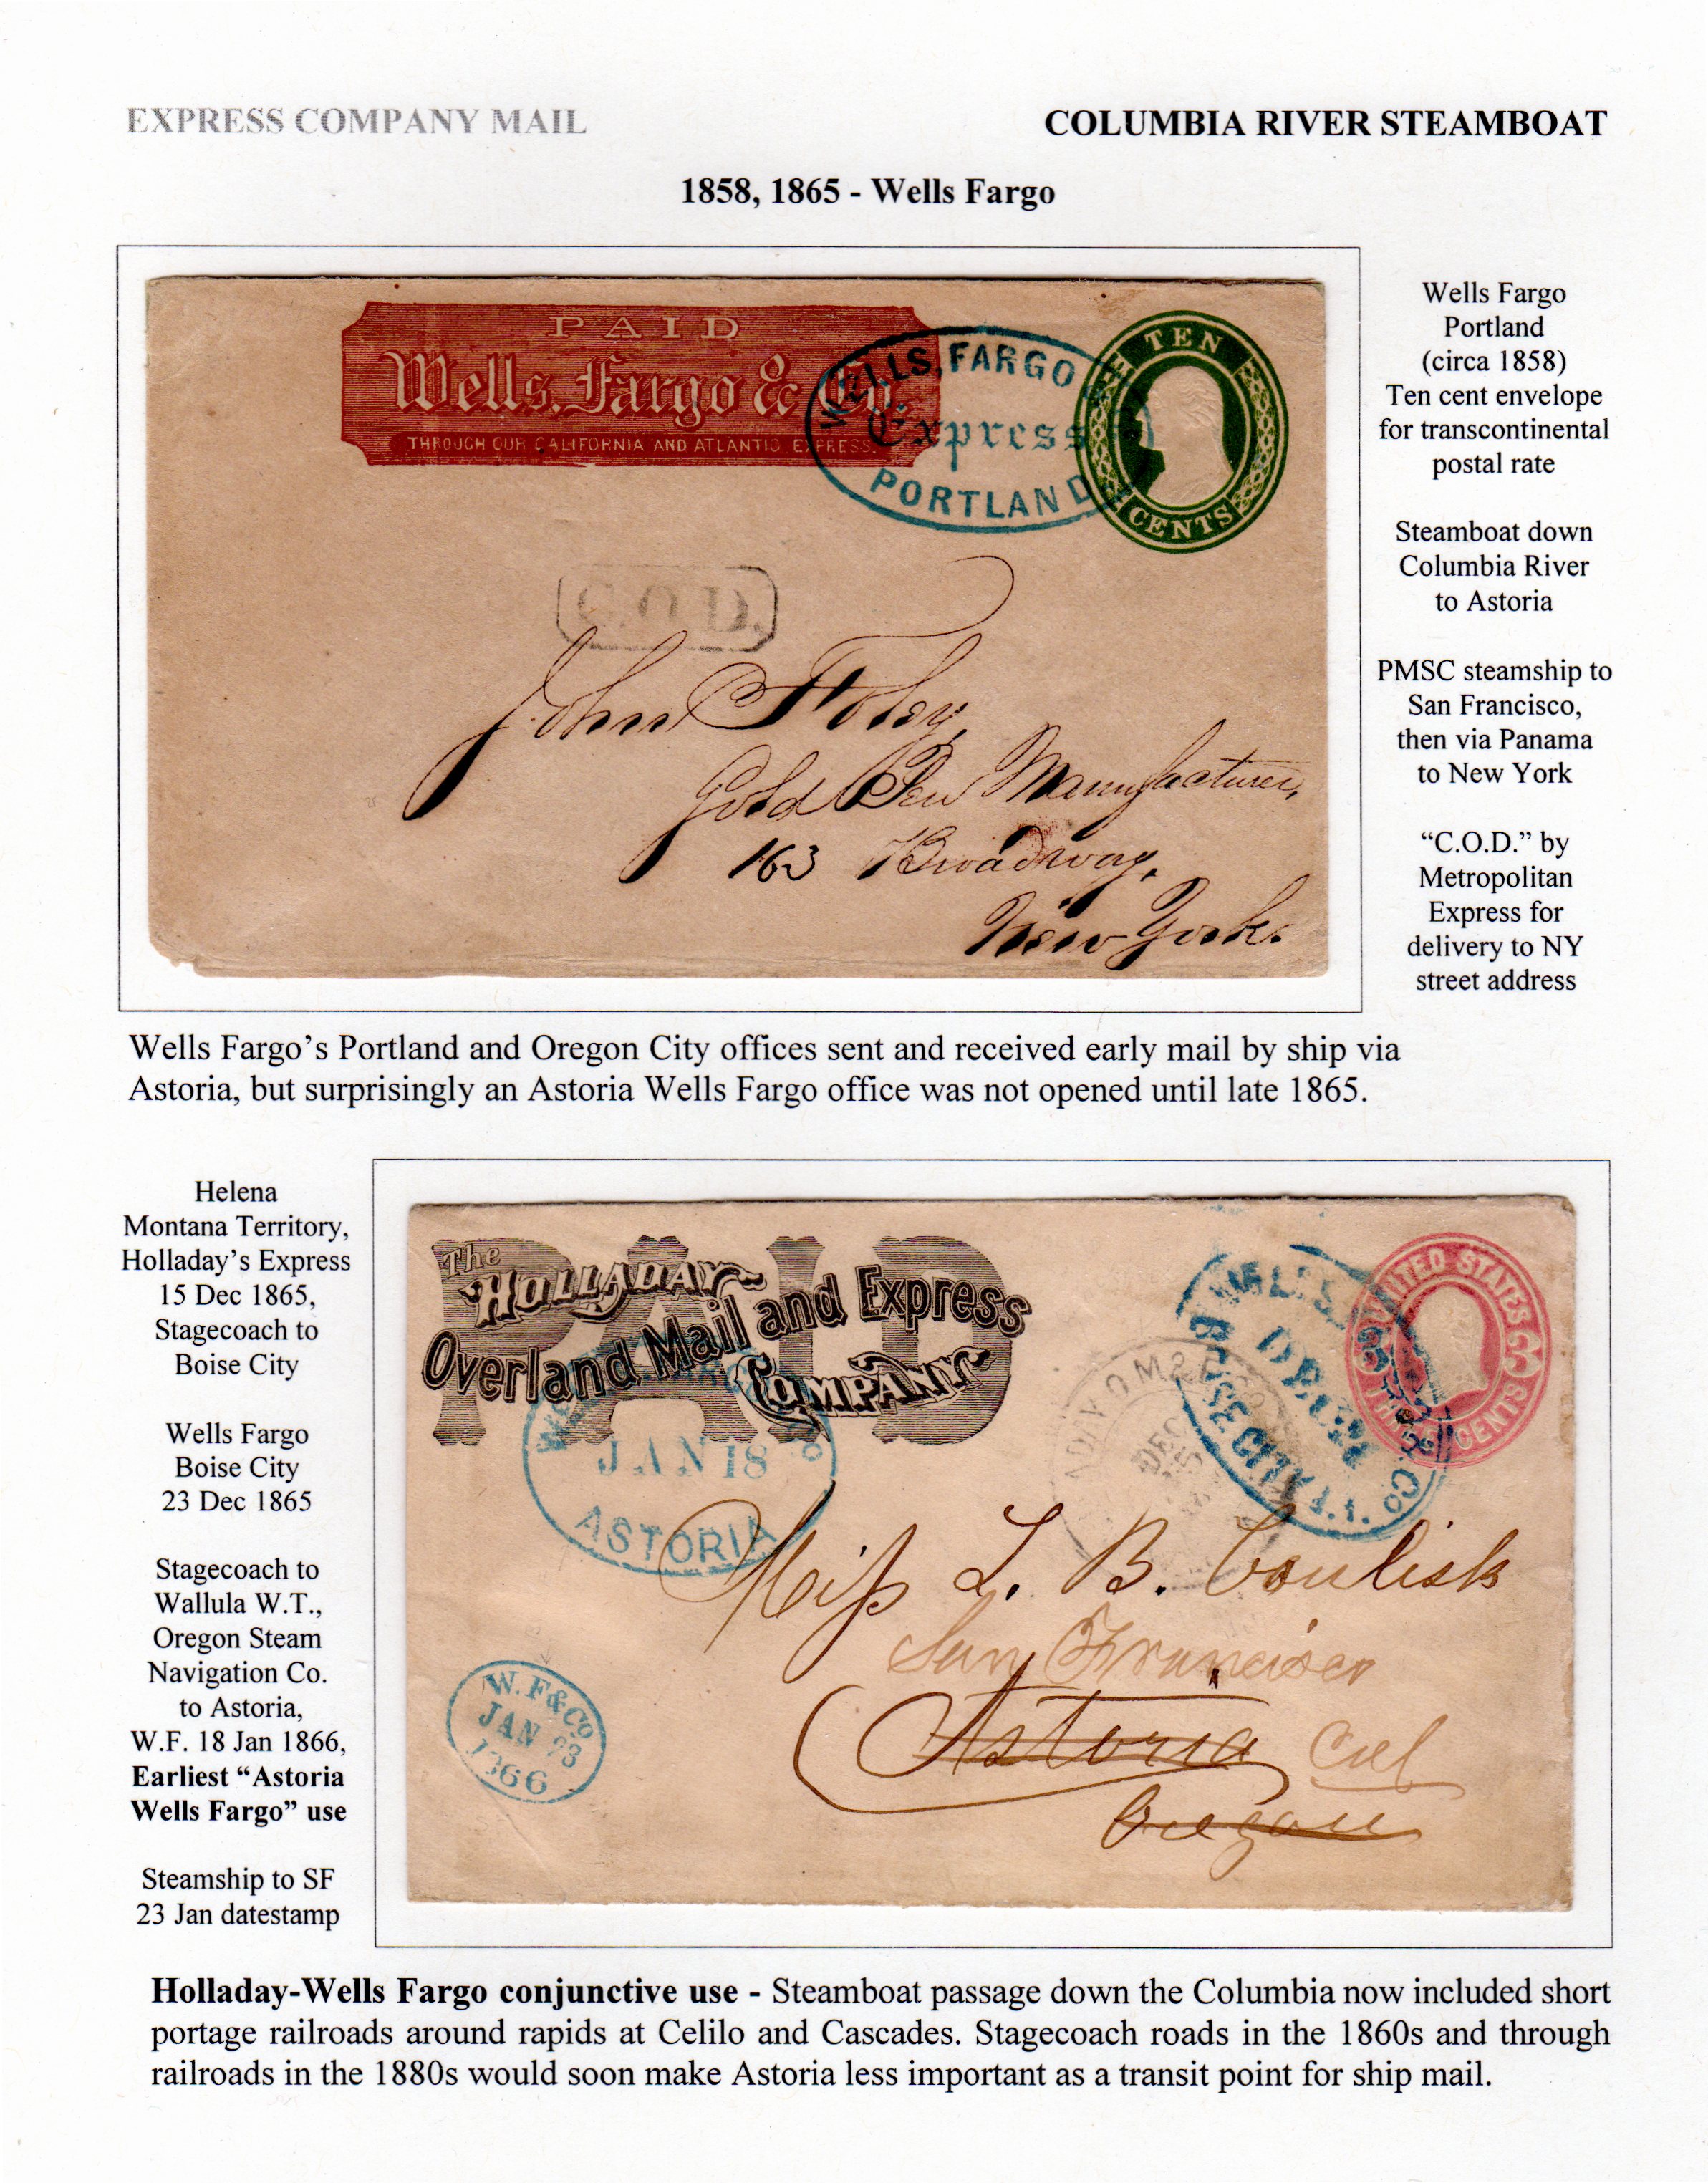 EXPRESS COMPANY MAIL
COLUMBIA RIVER STEAMBOAT
1858, 1865 - Wells Fargo
PAID
Wells, Fargo & Co.
THROUGH OUR CALIFORNIA AND ATLANTIC EXPRESS.
WELLS, FARGO &
Express
PORTLAND
TEN
CENTS
C.O.D.
John Foley,
Gold Pen Manufacturer,
163 Broadway,
New York.
Wells Fargo
Portland
(circa 1858)
Ten cent envelope
for transcontinental
postal rate
Steamboat down
Columbia River
to Astoria
PMSC steamship to
San Francisco,
then via Panama
to New York
“C.O.D.” by
Metropolitan
Express for
delivery to NY
street address
Wells Fargo’s Portland and Oregon City offices sent and received early mail by ship via
Astoria, but surprisingly an Astoria Wells Fargo office was not opened until late 1865.
Helena
Montana Territory,
Holladay’s Express
15 Dec 1865,
Stagecoach to
Boise City
Wells Fargo
Boise City
23 Dec 1865
Stagecoach to
Wallula W.T.,
Oregon Steam
Navigation Co.
to Astoria,
W.F. 18 Jan 1866,
Earliest “Astoria
Wells Fargo” use
Steamship to SF
23 Jan datestamp
PAID
The
HOLLADAY
Overland Mail and Express
COMPANY
JAN 18
ASTORIA
DEC
WELLS
BOISE CITY I.T.
UNITED STATES
3 3
CENTS
Miss L. B. Coulisk
San Francisco
Astoria Cal
Oregon
W.F.&Co
JAN 23
1866
Holladay-Wells Fargo conjunctive use - Steamboat passage down the Columbia now included short
portage railroads around rapids at Celilo and Cascades. Stagecoach roads in the 1860s and through
railroads in the 1880s would soon make Astoria less important as a transit point for ship mail.